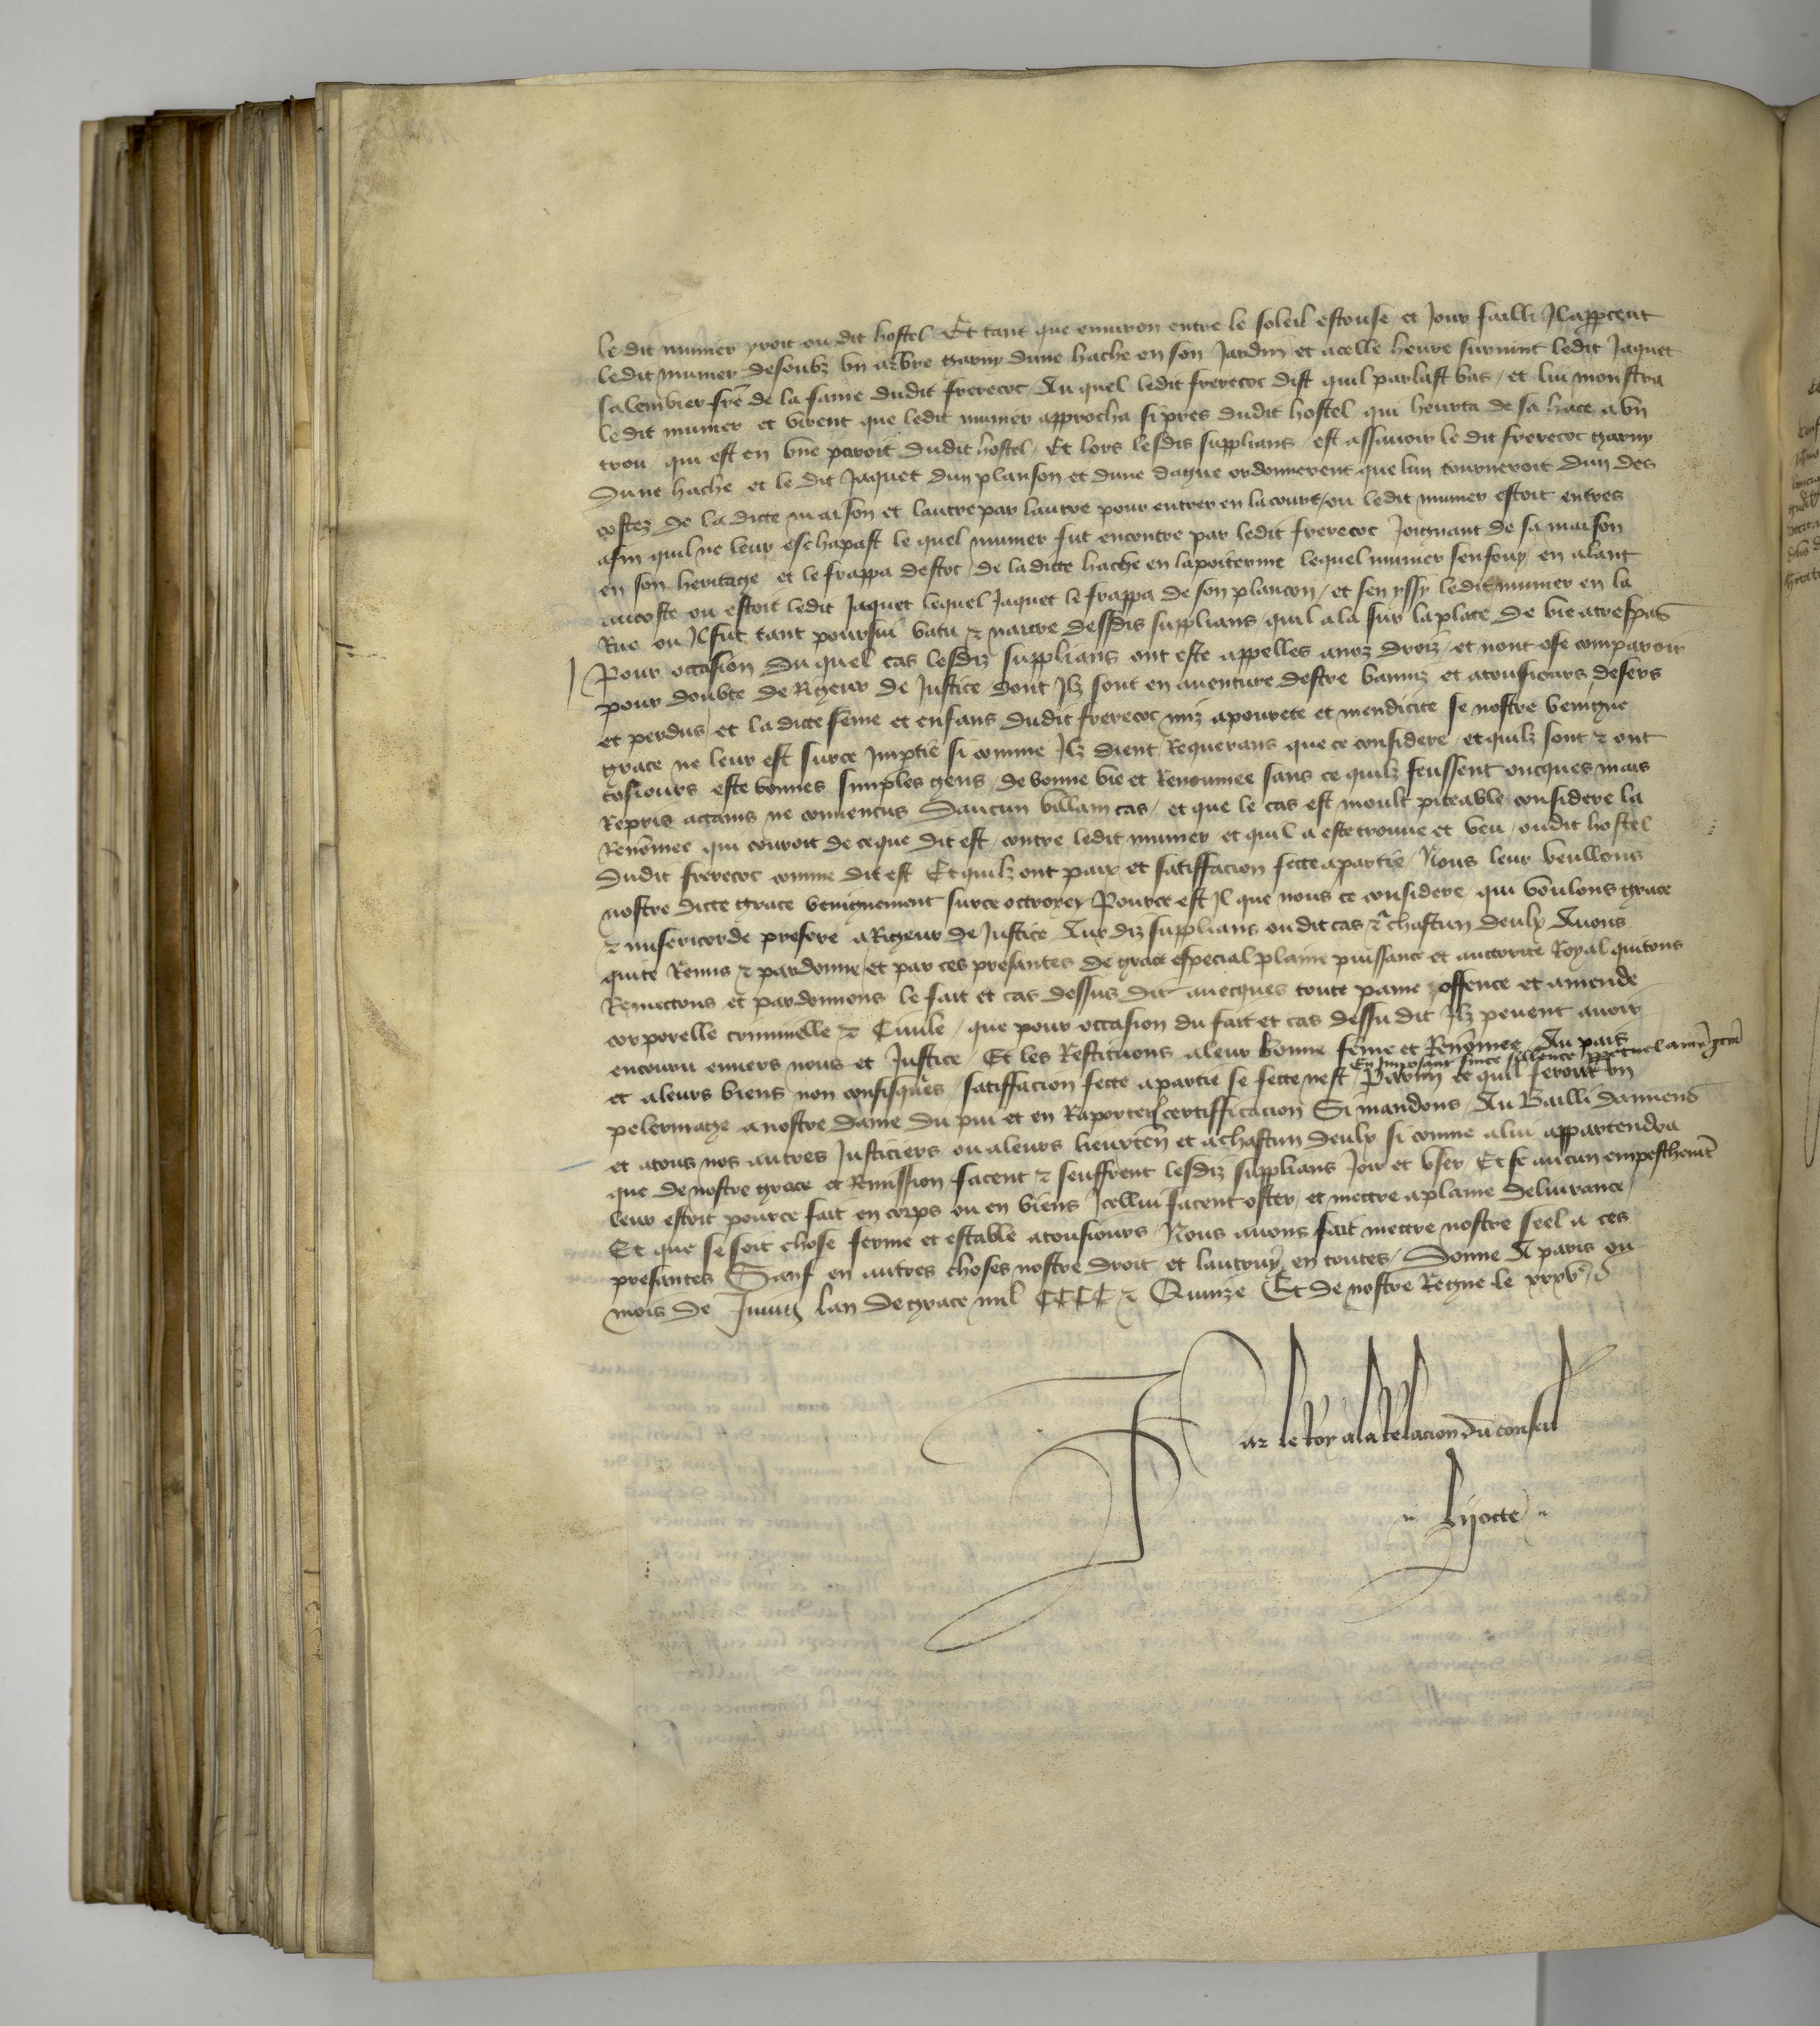 le dit mumer yroit ou dit hostel Et tant que enuiron entre le soleil escouse et Jour failli Il appceut
ledit mumer desoubz vn arbre garny dune hache en son Jardin et a celle heure suruint ledit Jaquet
salembier frē de la fame dudit frerecoc Au quel ledit frerecoc dist quil parlast bas / et lui monstra
le dit mumer et virent que ledit mumer approcha si pres dudit hostel qui heurta de sa hace a vn
trou qui est en vne paroit dudit hostel / Et lors lesdis supplians / est assauoir le dit frerecoc garny
dune hache et le dit Jaquet dun planson et dune dague ordonnerent que lun tourneroit dun des
costez de la dicte maison et lautre par lautre pour entrer en la court / ou ledit mumer estoit entres
afin quil ne leur eschapast le quel mumer fut encontre par ledit frerecoc Joignant de sa maison
en son heritage et le frappa destoc de la dicte hache en la poiterine lequel mumer senfouy en alant
au coste ou estoit ledit Jaquet lequel Jaquet le frappa de son plancon / et sen yssy ledit mumer en la
Rue ou Il fut tant poursui batu & nauré desdis supplians quil ala sur la place de vie a trespas
Pour occasion du quel cas lesdiz supplians ont este appelles a noz droiz / et nont ose comparoir
pour doubte de Rigeur de Justice dont Ilz sont en auenture destre banniz et a tousiours desers
et perdus / et la dicte feme et enfans dudit frerecoc miz a pourete et mendicite se nostre benigne
grace ne leur est sur ce Imptie si comme Ilz dient / Requerans que ce considere / et quilz sont & ont
tosiours este bonnes simples gens de bonne vie et Renommee sans ce quilz feussent oncques mais
Repris attains ne conuencus daucun villain cas / et que le cas est moult piteable considere la
Renōmee qui couroit de ce que dit est / contre ledit mumer et quil a este trouue et veu / oudit hostel
dudit frerecoc comme dit est Et quilz ont paix et satiffacion fecte a partie / Nous leur veullons
nostre dicte grace benignement sur ce octroyer Pource est Il que nous ce considere / qui voulons grace
& misericorde preferé a Rigeur de Justice Aus diz supplians ou dit cas & a chascun deulx Auons
quite Remis & pardonne / et par ces presantes de grace especial plaine puissance et auctorite Royal quitons
Remectons et pardonnons le fait et cas dessus dit auecques toute paine offence et amende
corporelle criminelle & Ciuile / que pour occasion du fait et cas dessu dit Ilz peuent auoir
encouru enuers nous et Justice / Et les Restituons a leur bonne feme et Renōmee Au pais
En Imposant sur ce sillence ppetuel a nrē
et a leurs biens non confisques satiffacion fecte a partie se fecte nest / Parmi ce quil feront vn
pelerinage a nostre dame du pui et en Raporterōt certifficacion Si mandons Au Bailli damiens
et a tous nos autres Justiciers ou a leurs lieuxten̄ et a chascun deulx si comme a lui appartendra
que de nostre grace et Remission facent & seuffrent lesdiz supplians Joir et vser / Et se aucun empeschemēt
leur estoit pource fait en corps ou en biens Icellui facent oster / et mettre a plaine deliurance /
Et que se soit chose ferme et estable a tousiours / Nous auons fait mettre nostre seel a ces
presantes Sauf en autres choses nostre droit et lautruy en toutes / Donne A paris ou
mois de Juing lan de grace mil CCCC & Quinze Et de nostre Regne le xxxve
Par le Roy a la Relacion du conseil
Lijotte